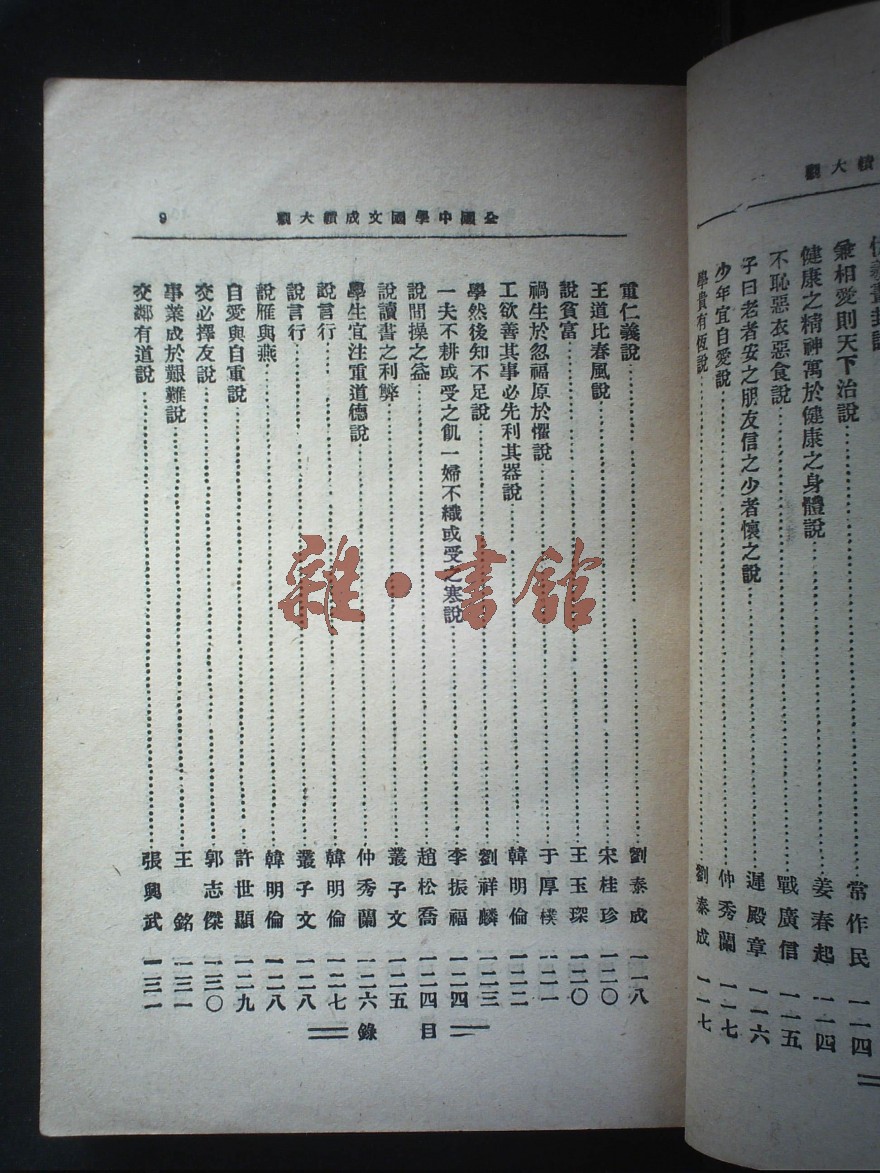 績大觀
兼相愛則天下治說 常作民 一一四
健康之精神寓於健康之身體說 姜春起 一一四
不恥惡衣惡食說 戰廣信 一一五
子曰老者安之朋友信之少者懷之說 遲殿章 一一六
少年宜自愛說 仲秀蘭 一一七
學貴有恆說 劉泰成 一一七
全國中學國文成績大觀 9
重仁義說 劉泰成 一一八
王道比春風說 宋桂珍 一二〇
說貧富 王玉琛 一二〇
禍生於忽福原於懼說 于厚樸 一二一
工欲善其事必先利其器說 韓明倫 一二二
學然後知不足說 劉祥麟 一二三
一夫不耕或受之飢一婦不織或受之寒說 李振福 一二四
說間操之益 趙松喬 一二四
說讀書之利弊 叢子文 一二五
學生宜注重道德說 仲秀蘭 一二六
說言行 韓明倫 一二七
說言行 叢子文 一二八
說雁與燕 韓明倫 一二八
自愛與自重說 許世顯 一二九
交必擇友說 郭志傑 一三〇
事業成於艱難說 王銘 一三一
交鄰有道說 張興武 一三一
目錄
雜·書館